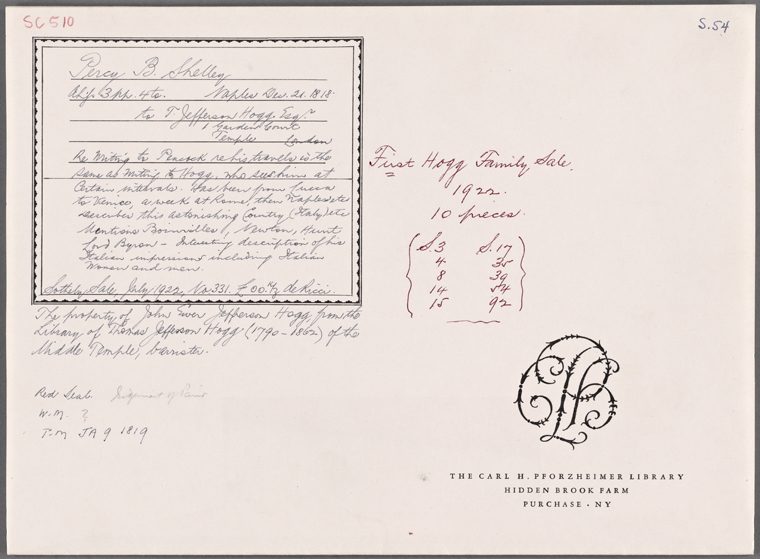 SC 510
S.54
Percy B. Shelley
A.l.f. 3 pp. 4to. Naples Dec. 21. 1818.
to T. Jefferson Hogg. Esqr.
1 Garden Court
Temple London
Re Writing to Peacock re his travels is the
same as writing to Hogg, who sees him at
Certain intervals. Has been from Lucca
to Venice, a week at Rome, then Naples etc
describes this astonishing Country (Italy) etc
Mentions Boinvilles, Newton, Hunt
Lord Byron – Interesting description of his
Italian impressions including Italian
Women and men.
Sotheby Sale, July, 1922, No. 331. de Ricci.
The property of John Ewer Jefferson Hogg, from the
Library of Thomas Jefferson Hogg (1790–1862) of the
Middle Temple, barrister.
Red Seal.
W.M. ?
P.M JA 9 1819
First Hogg Family Sale.
1922.
10 pieces.
S.3 S.17
4 35
8 39
14 54
15 92
THE CARL H. PFORZHEIMER LIBRARY
HIDDEN BROOK FARM
PURCHASE · NY